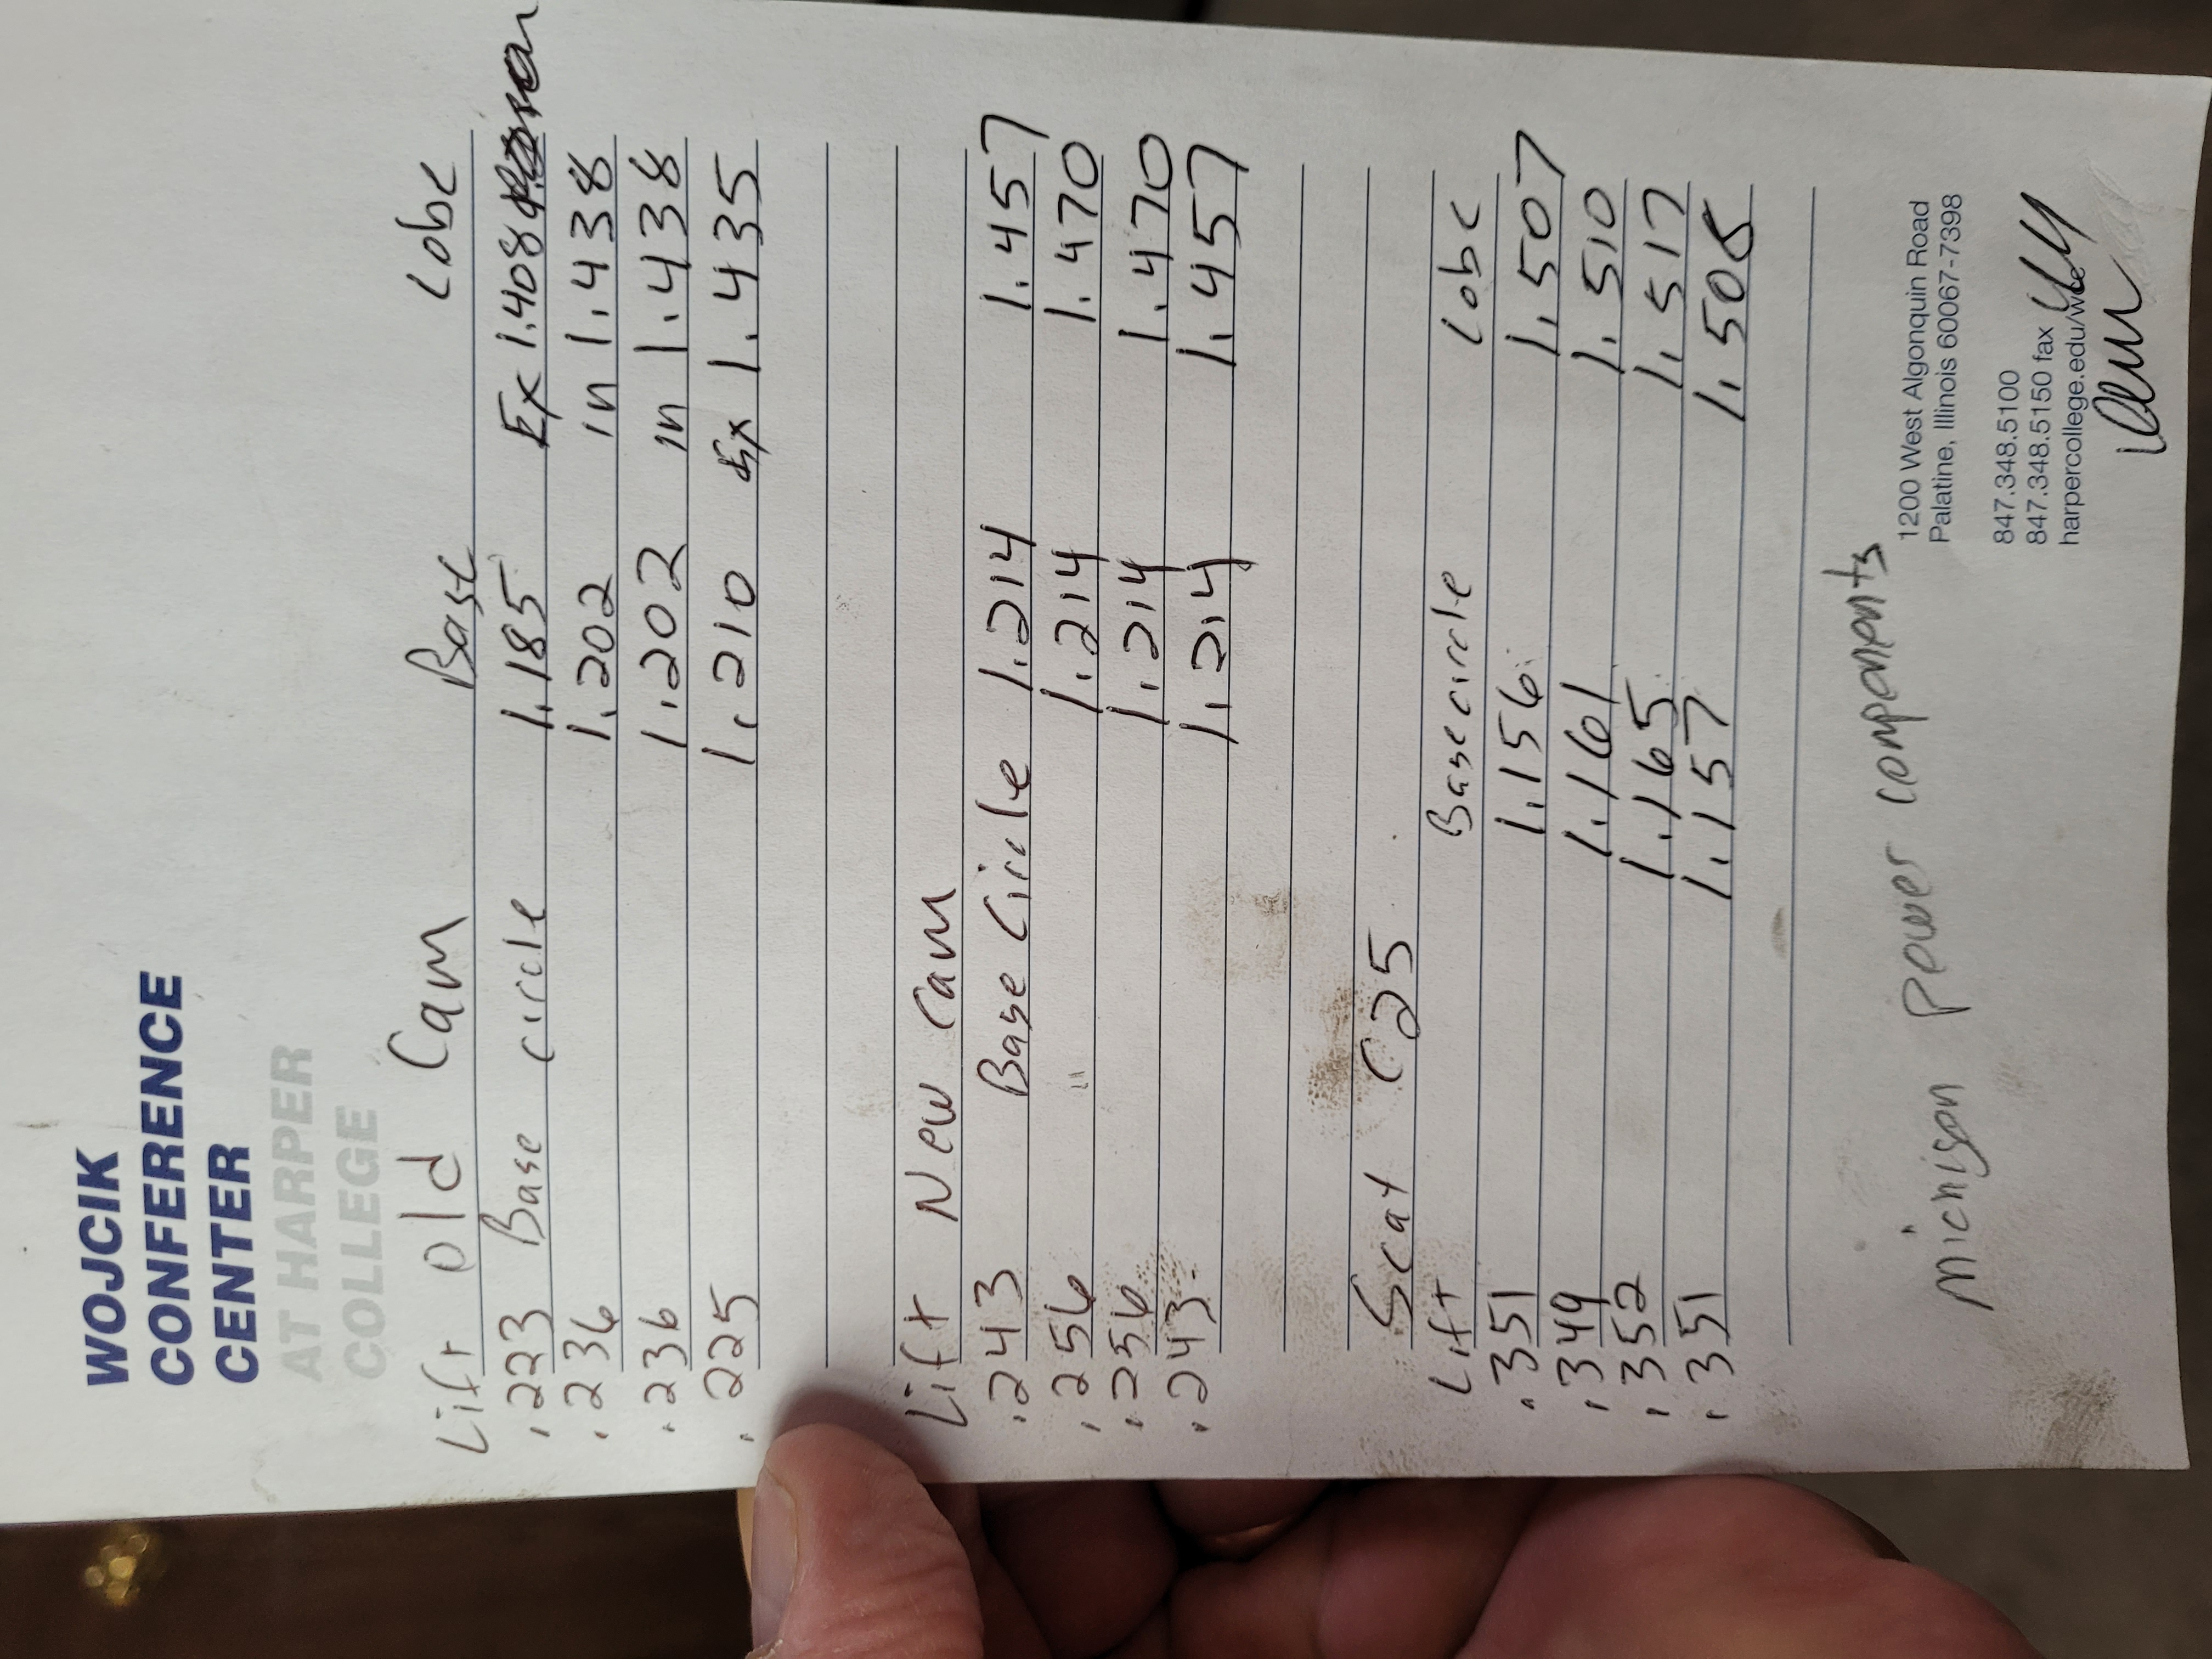 WOJCIK
CONFERENCE
CENTER
AT HARPER
COLLEGE
Lift old Cam Base Lobe
.223 Base circle 1.185 Ex 1.408
.236 1.202 in 1.438
.236 1.202 in 1.438
.225 1.210 Ex 1.435
Lift New Cam
.243 Base Circle 1.214 1.457
.256 " 1.214 1.470
.256 1.214 1.470
.243 1.214 1.457
Scat C25
Lift Base circle Lobe
.351 1.156 1.507
.349 1.161 1.510
.352 1.165 1.517
.351 1.157 1.508
michigan power components
1200 West Algonquin Road
Palatine, Illinois 60067-7398
847.348.5100
847.348.5150 fax
harpercollege.edu/wcc